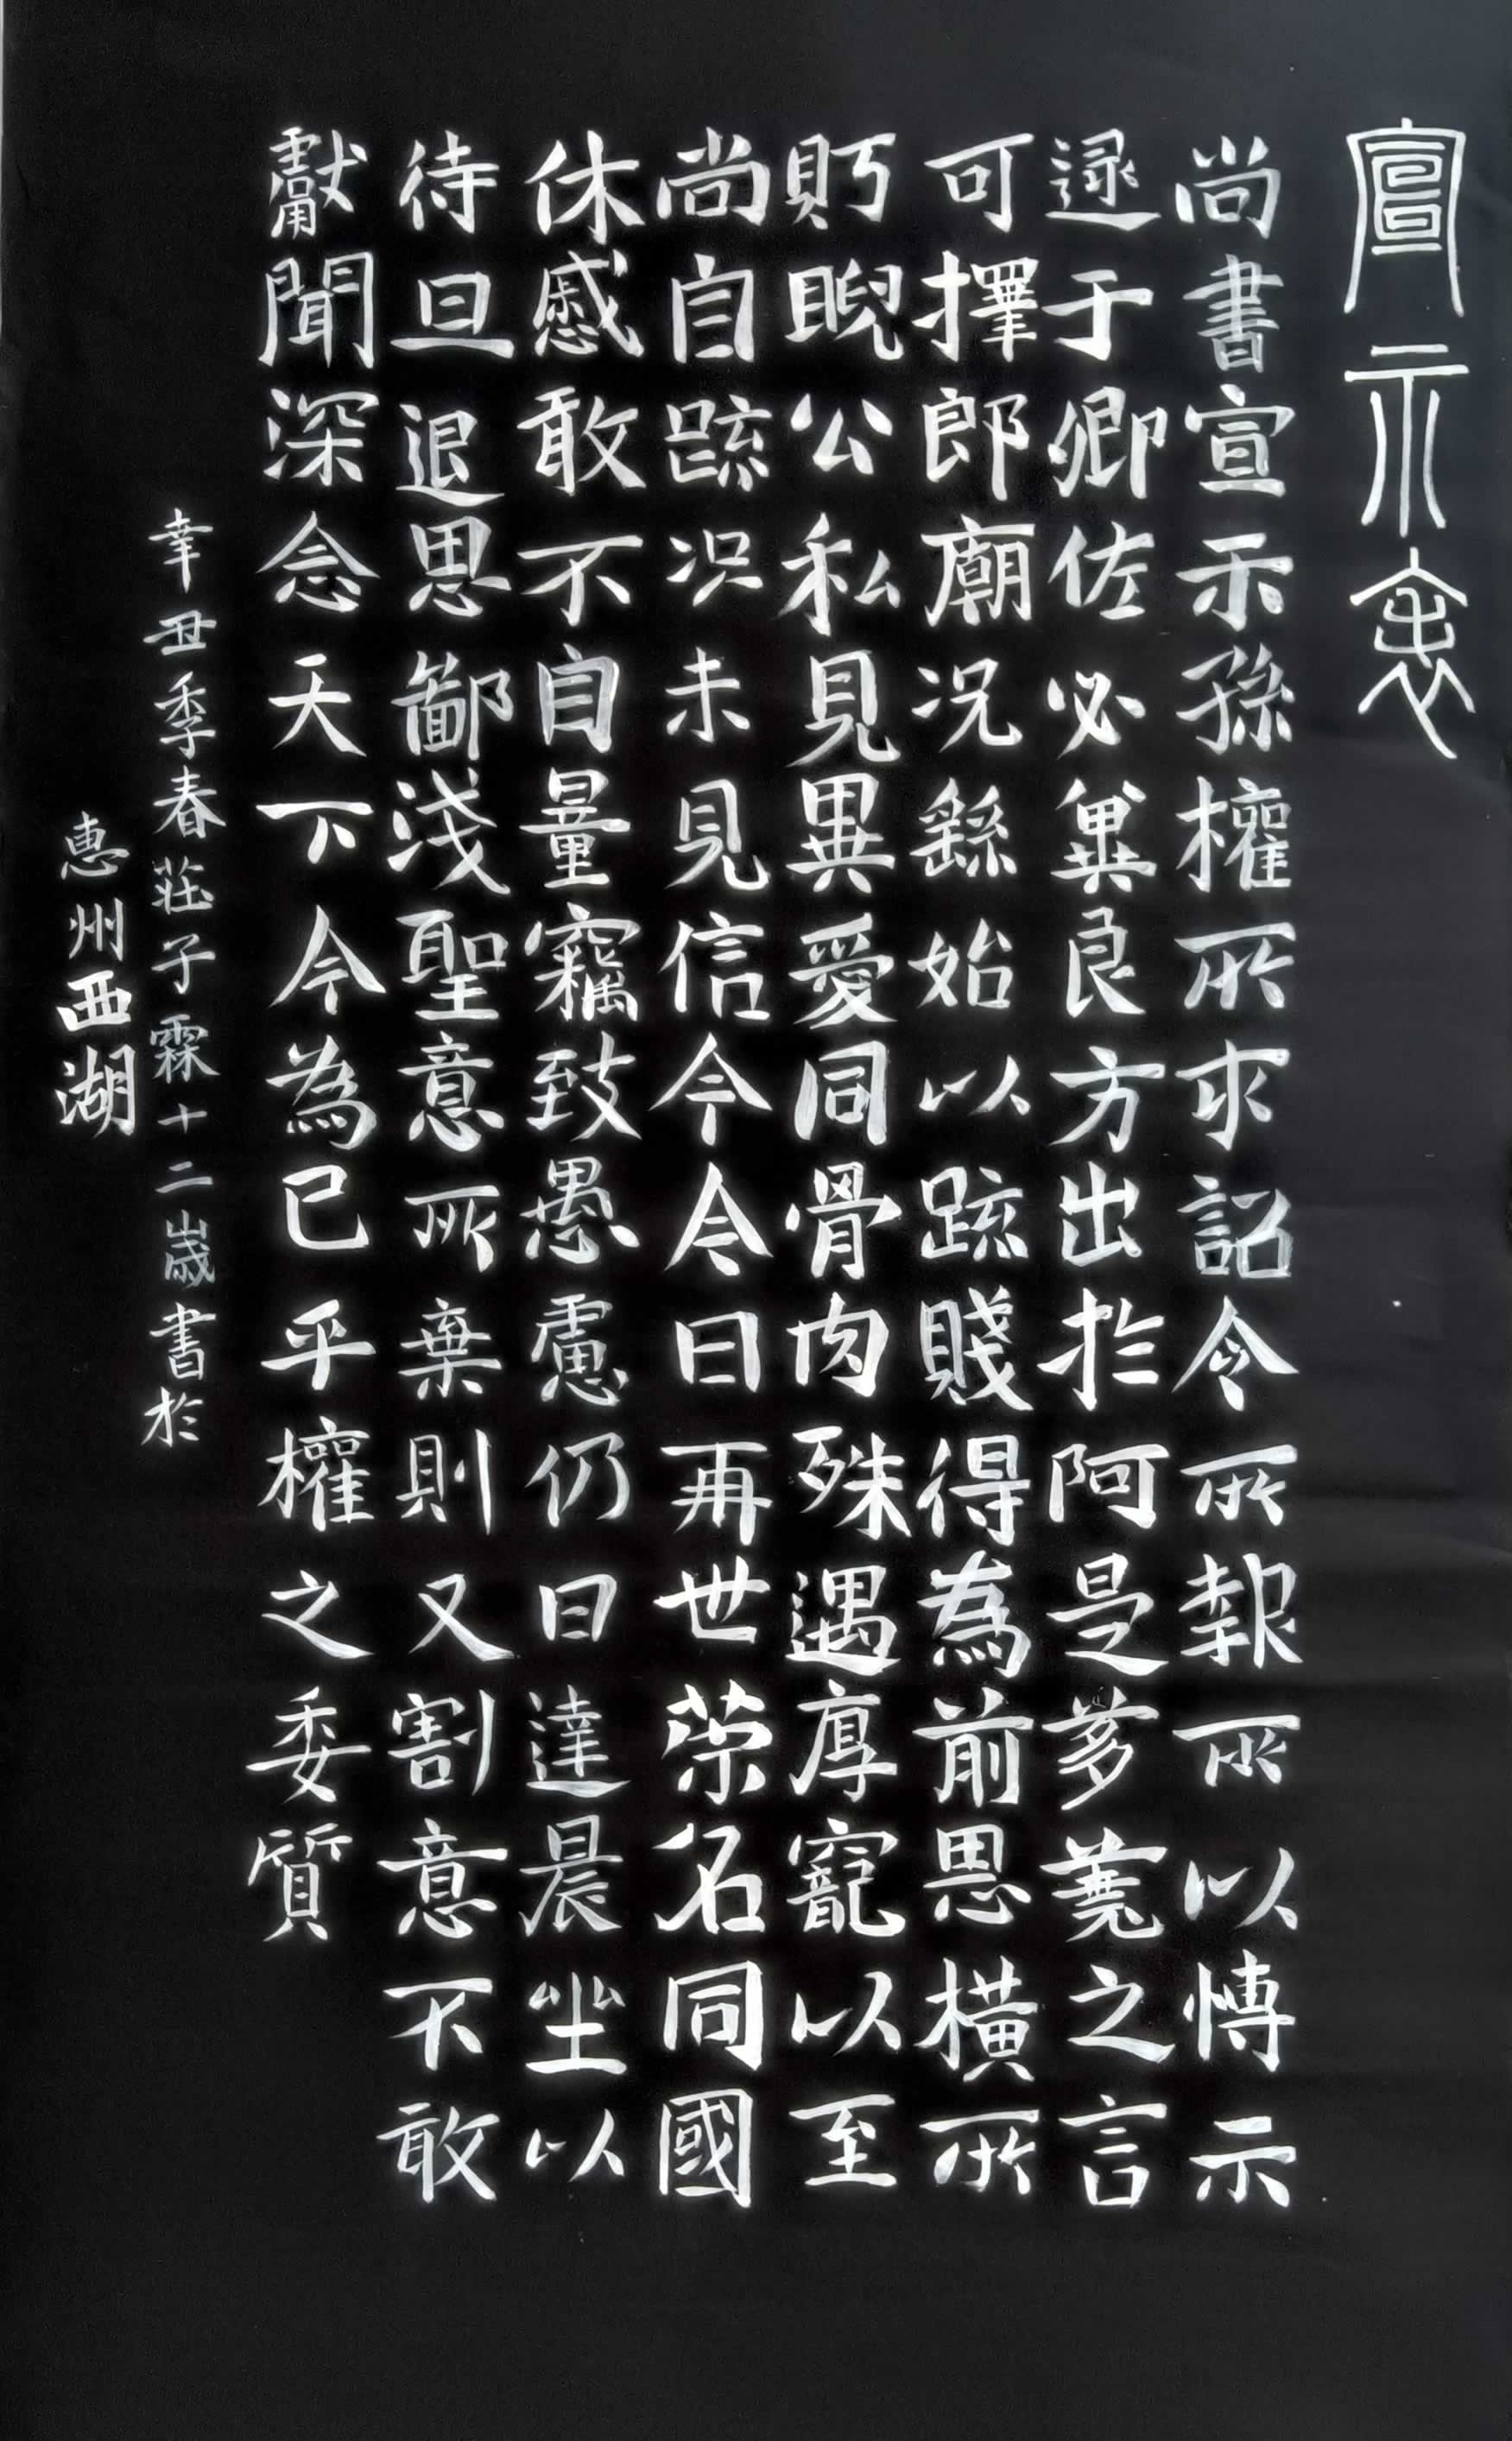 宣示表
尚書宣示孫權所求詔令所報所以博示
逯于卿佐必冀良方出於阿是芻蕘之言
可擇郎廟況繇始以疏賤得為前恩橫所
眄睨公私見異愛同骨肉殊遇厚寵以至
尚自疏況未見信今令日再世荣名同國
休慼敢不自量竊致愚慮仍日達晨坐以
待旦退思鄙淺聖意所棄則又割意不敢
獻聞深念天下今為已平權之委質
辛丑季春莊子霖十二歲書於
惠州西湖